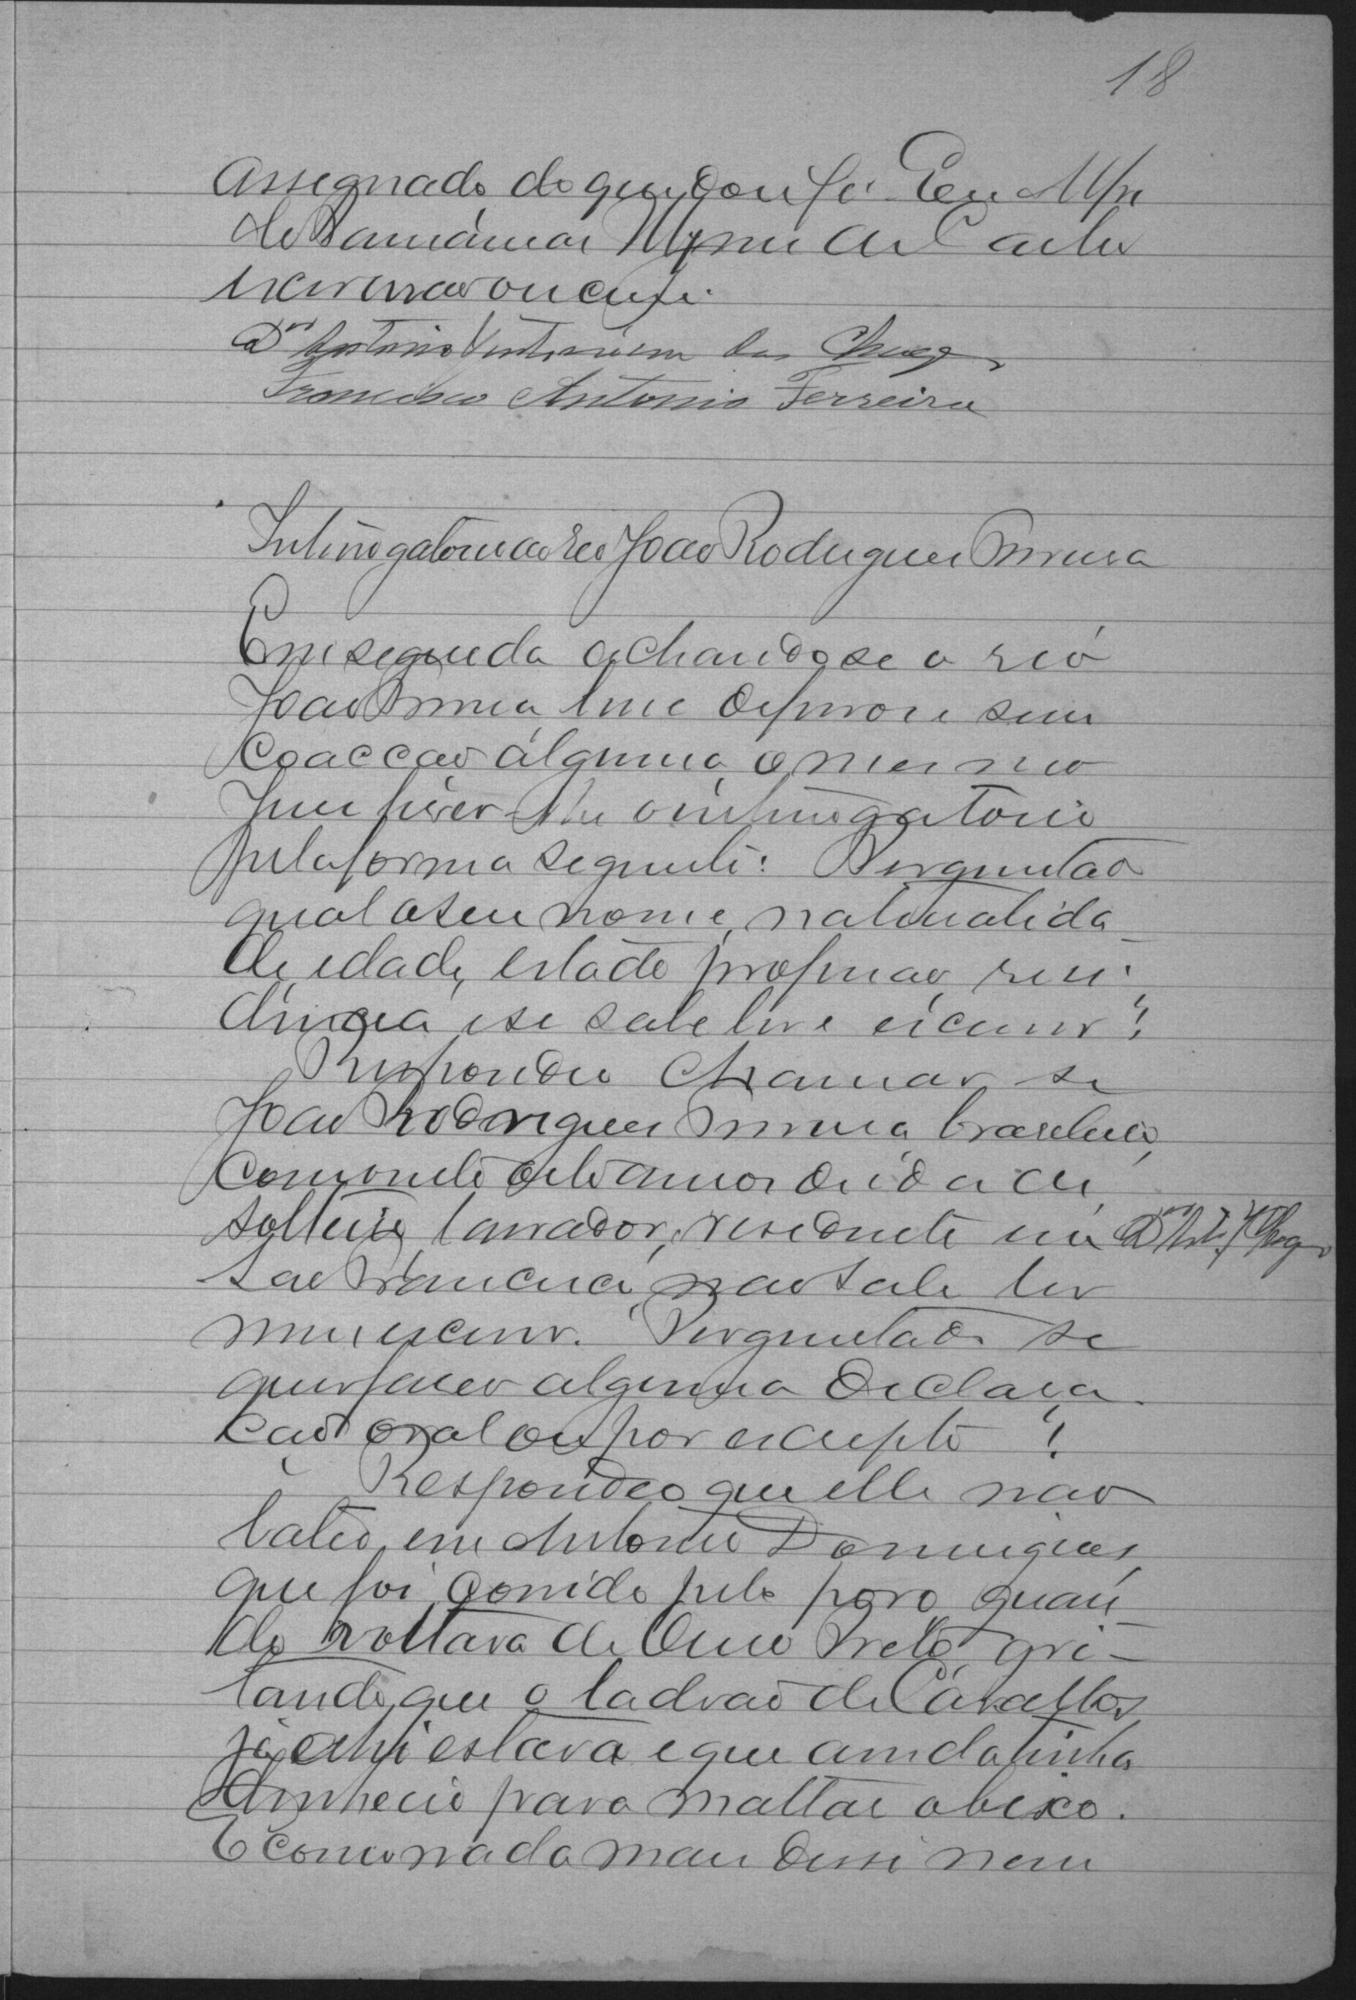 18
Assignado do que dou fé. Eu
de
escrivão o escrevi.
Dr Antonio das Chagas
Francisco Antonio Ferreira
Interrogatorio ao reo João Rodrigues
Em seguida achando se o reó
João livre de ferros e sem
coacção álguma, o mesmo
Juiz fêz-lhe o interrogatorio
pela forma seguinte: Perguntado
qual o seu nome, naturalida-
de, edade, estado profissão, resi-
dência e se sabe ler e escrever?
Respondeu chamar se
João Rodrigues brasileiro,
com annos de idade
solteiro, lavrador, residente em
São não sabe ler
nem escrever. Perguntado se
quer fazer alguma declara
ção oral ou por escripto?
Respondeo que elle não
bateo em Antonio Domingues,
que foi corrido pelo povo quan-
do voltava de Ouro Preto gri-
tando que o ladrão de Cavallos
já ahi estava e que ainda tinha
dinheiro para mattar o bixo.
E como nada mais disse nem